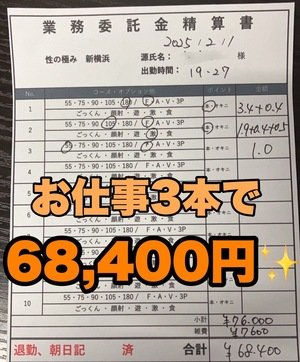 業務委託金精算書
2025.12.11
性の極み 新横浜
源氏名: 様
出勤時間: 19-27
No. コース・オプション他 ポイント 金額
1 55・75・90・105・180/ F・A・V・3P 本・オキニ 3.4+0.4
ごっくん・顔射・遊・激・食
2 55・75・90・105・180/ F・A・V・3P 本・オキニ 1.9+0.4+0.5
ごっくん・顔射・遊・激・食
3 55・75・90・105・180/ F・A・V・3P 本・オキニ 1.0
ごっくん・顔射・遊・激・食
お仕事3本で
68,400円
10 本・オキニ
小計 ¥76.000
雑費 ¥7600
退勤、朝日記 済 合計 ¥68.400